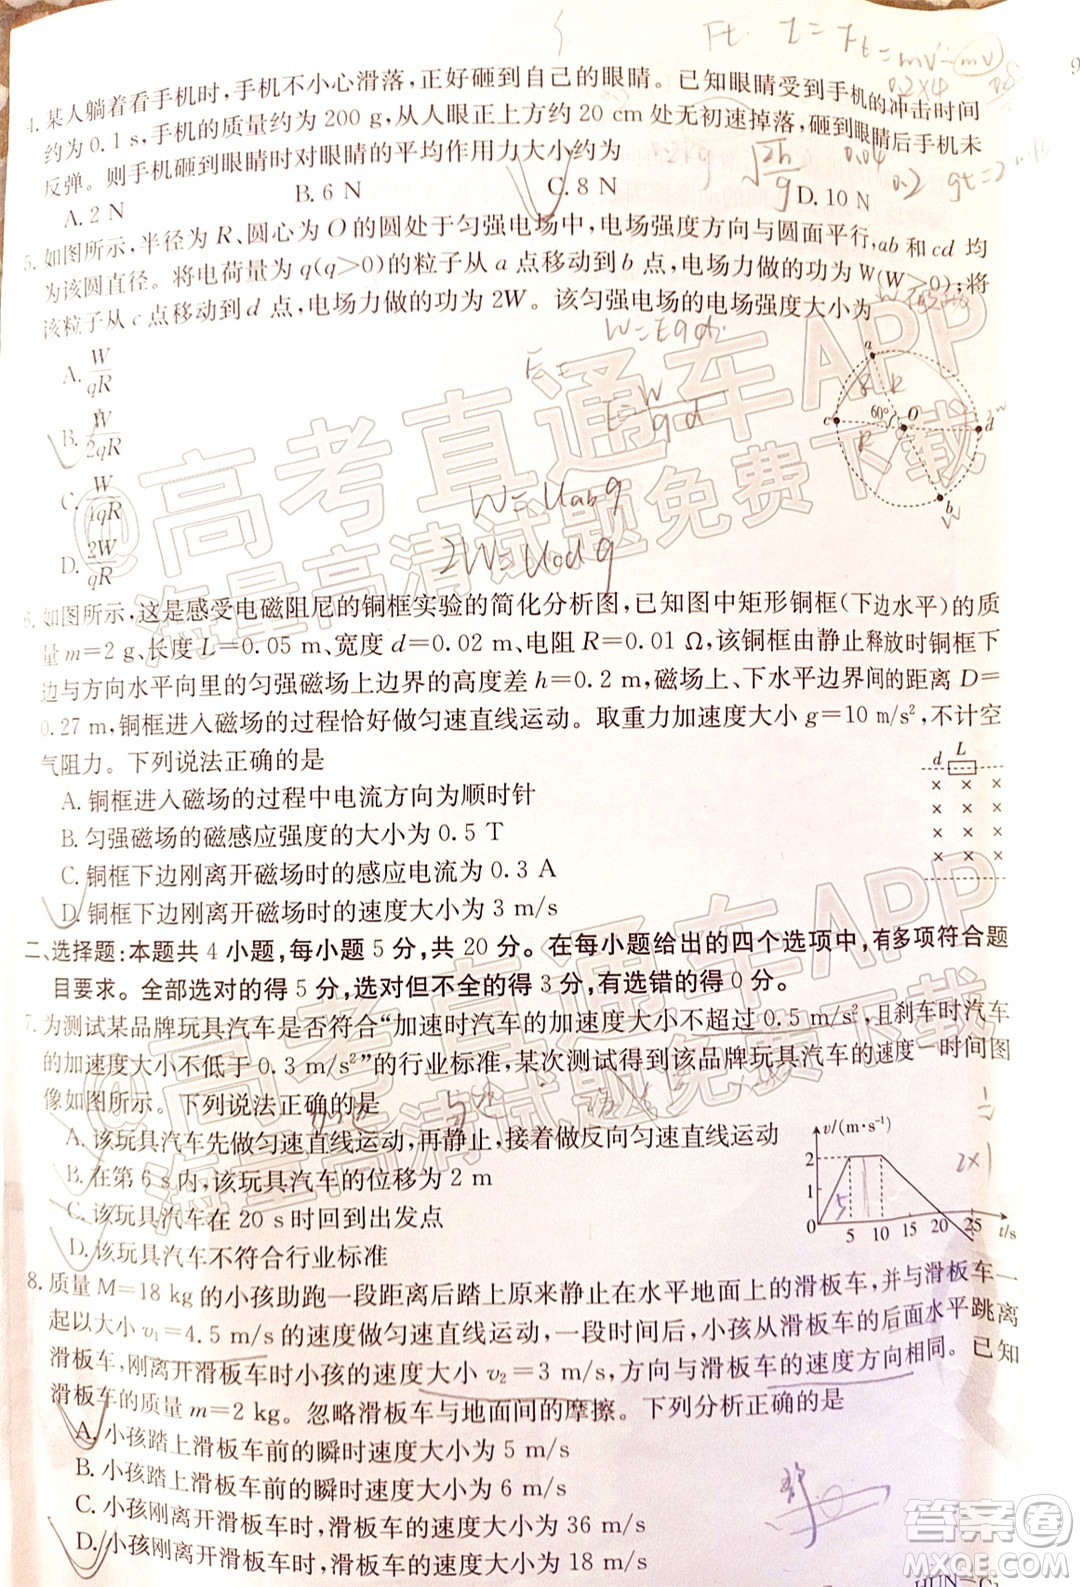 Ft. I = Ft = mv - mv
0.2×4
4. 某人躺着看手机时,手机不小心滑落,正好砸到自己的眼睛。已知眼睛受到手机的冲击时间
约为 0.1 s,手机的质量约为 200 g,从人眼正上方约 20 cm 处无初速掉落,砸到眼睛后手机未
反弹。则手机砸到眼睛时对眼睛的平均作用力大小约为
A. 2 N B. 6 N C. 8 N D. 10 N
0.04
0.2 gt=2
5. 如图所示,半径为 R、圆心为 O 的圆处于匀强电场中,电场强度方向与圆面平行,ab 和 cd 均
为该圆直径。将电荷量为 q(q>0)的粒子从 a 点移动到 b 点,电场力做的功为 W(W>0);将
该粒子从 c 点移动到 d 点,电场力做的功为 2W。该匀强电场的电场强度大小为
W=Eqd
A. W/qR
B. W/2qR
C. W/4qR
D. 2W/qR
E = W/qd
W=Uabq
2W=Ucdq
a
R R
c 60° O d
R
b
6. 如图所示,这是感受电磁阻尼的铜框实验的简化分析图,已知图中矩形铜框(下边水平)的质
量 m=2 g、长度 L=0.05 m、宽度 d=0.02 m、电阻 R=0.01 Ω,该铜框由静止释放时铜框下
边与方向水平向里的匀强磁场上边界的高度差 h=0.2 m,磁场上、下水平边界间的距离 D=
0.27 m,铜框进入磁场的过程恰好做匀速直线运动。取重力加速度大小 g=10 m/s²,不计空
气阻力。下列说法正确的是
A. 铜框进入磁场的过程中电流方向为顺时针
B. 匀强磁场的磁感应强度的大小为 0.5 T
C. 铜框下边刚离开磁场时的感应电流为 0.3 A
D. 铜框下边刚离开磁场时的速度大小为 3 m/s
d L
× × ×
× × ×
× × ×
× × ×
二、选择题:本题共 4 小题,每小题 5 分,共 20 分。在每小题给出的四个选项中,有多项符合题
目要求。全部选对的得 5 分,选对但不全的得 3 分,有选错的得 0 分。
7. 为测试某品牌玩具汽车是否符合“加速时汽车的加速度大小不超过 0.5 m/s²,且刹车时汽车
的加速度大小不低于 0.3 m/s²”的行业标准,某次测试得到该品牌玩具汽车的速度一时间图
像如图所示。下列说法正确的是
A. 该玩具汽车先做匀速直线运动,再静止,接着做反向匀速直线运动
B. 在第 6 s 内,该玩具汽车的位移为 2 m
C. 该玩具汽车在 20 s 时回到出发点
D. 该玩具汽车不符合行业标准
v/(m·s⁻¹)
2
1
0 5 10 15 20 25 t/s
5
2×1
8. 质量 M=18 kg 的小孩助跑一段距离后踏上原来静止在水平地面上的滑板车,并与滑板车一
起以大小 v₁=4.5 m/s 的速度做匀速直线运动,一段时间后,小孩从滑板车上水平跳离
滑板车,刚离开滑板车时小孩的速度大小 v₂=3 m/s,方向与滑板车的速度方向相同。已知
滑板车的质量 m=2 kg。忽略滑板车与地面间的摩擦。下列分析正确的是
A. 小孩踏上滑板车前的瞬时速度大小为 5 m/s
B. 小孩踏上滑板车前的瞬时速度大小为 6 m/s
C. 小孩刚离开滑板车时,滑板车的速度大小为 36 m/s
D. 小孩刚离开滑板车时,滑板车的速度大小为 18 m/s
@高考直通车APP
海量高清试题免费下载
@高考直通车APP
海量高清试题免费下载
答案圈
MXQE.COM
HUN—C